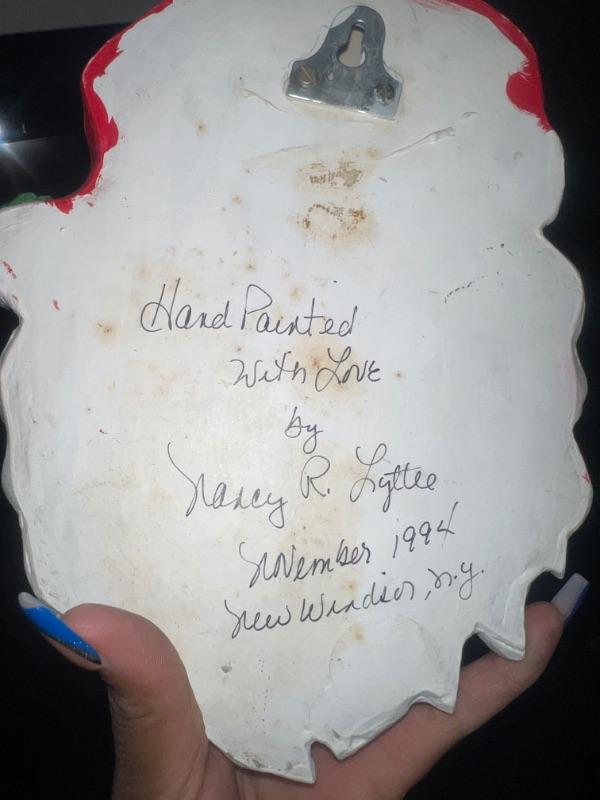 Hand Painted
With Love
by
Nancy R. Lyttee
November 1994
New Windsor, N.Y.